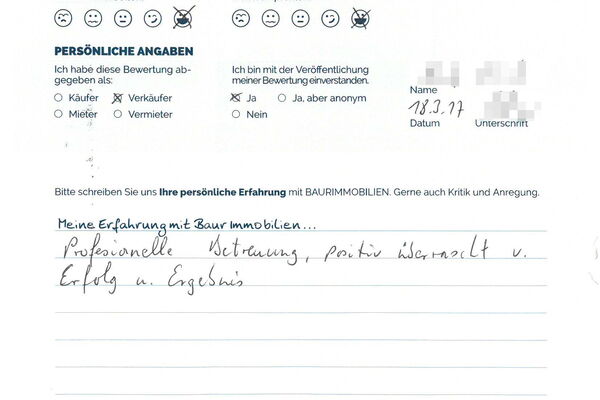 PERSÖNLICHE ANGABEN
Ich habe diese Bewertung ab-
gegeben als:
Käufer Verkäufer
Mieter Vermieter
Ich bin mit der Veröffentlichung
meiner Bewertung einverstanden.
Ja Ja, aber anonym
Nein
Name
18.3.17
Datum Unterschrift
Bitte schreiben Sie uns Ihre persönliche Erfahrung mit BAURIMMOBILIEN. Gerne auch Kritik und Anregung.
Meine Erfahrung mit Baur Immobilien...
Profesionelle Betreuung, positiv überrascht v.
Erfolg u. Ergebnis